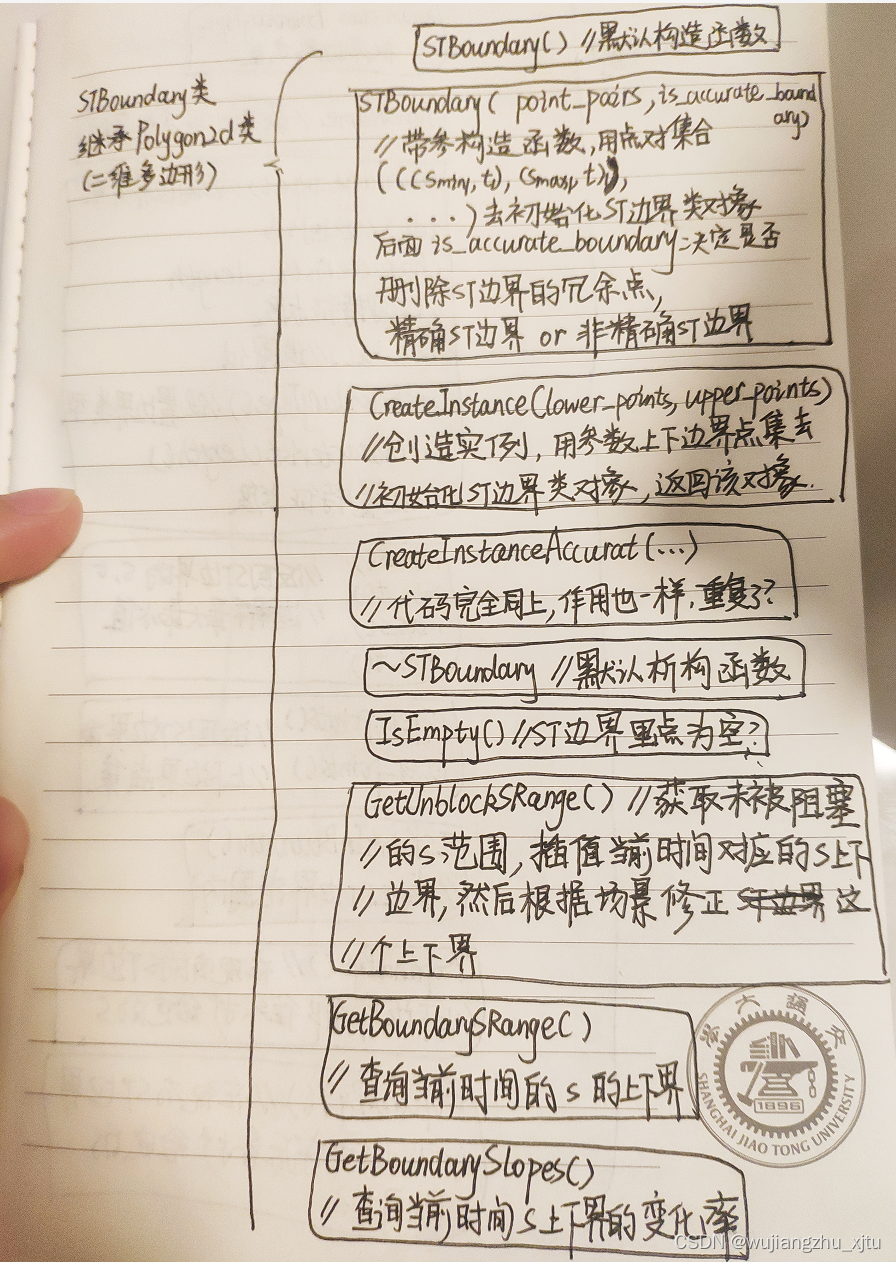 STBoundary类
继承Polygon2d类
(二维多边形)
STBoundary() //默认构造函数
STBoundary( point_pairs, is_accurate_bound
ary)
//带参构造函数,用点对集合
(((smin, t), (smax, t)),
...)去初始化ST边界类对象
后面is_accurate_boundary决定是否
删除ST边界的冗余点,
精确ST边界 or 非精确ST边界
CreateInstance(lower_points, upper_points)
//创造实例, 用参数上下边界点集去
//初始化ST边界类对象, 返回该对象.
CreateInstanceAccurat(...)
//代码完全同上, 作用也一样, 重复了?
~STBoundary //默认析构函数
IsEmpty() //ST边界里点为空?
GetUnblockSRange() //获取未被阻塞
//的s范围, 插值当前时间对应的s上下
//边界, 然后根据场景修正 ST边界 这
//个上下界
GetBoundarySRange()
// 查询当前时间的 s 的上下界
GetBoundarySlopes()
// 查询当前时间s上下界的变化率
上海交通大学
SHANGHAI JIAO TONG UNIVERSITY
1896
CSDN @wujiangzhu_xjtu